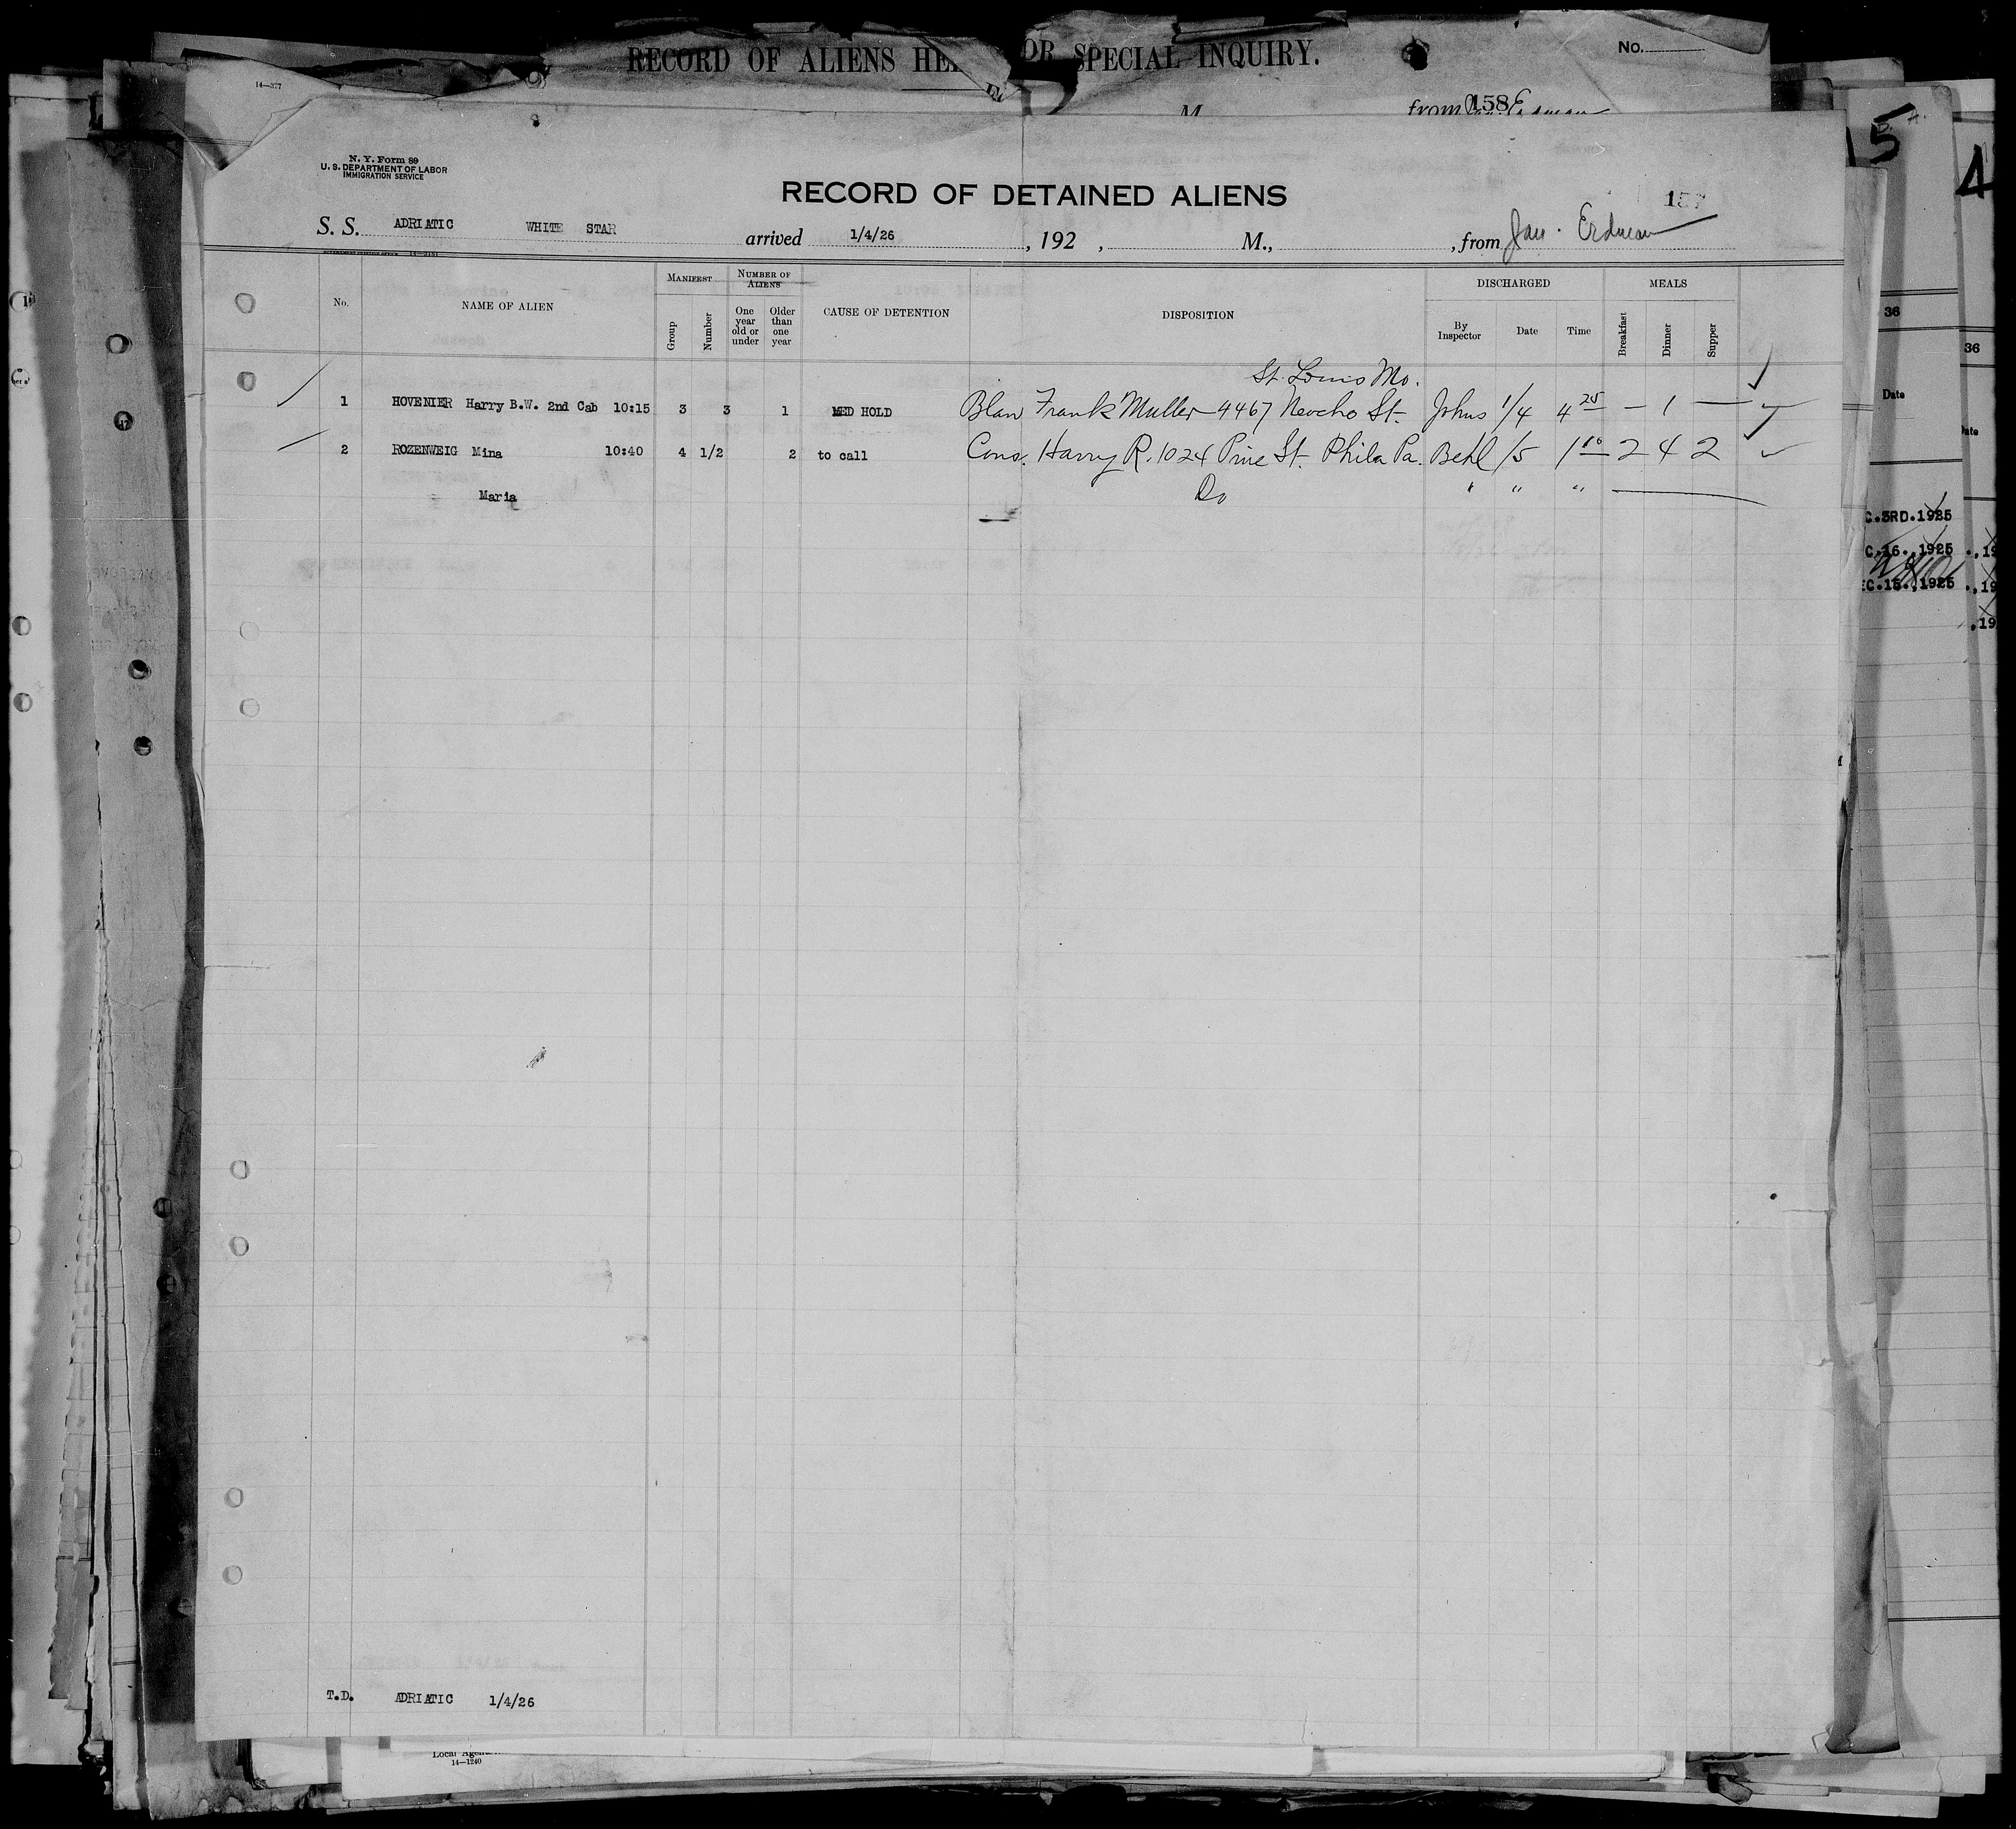 RECORD OF ALIENS HE OR SPECIAL INQUIRY.
No.
14—377
M
from
158
N. Y. Form 89
U. S. DEPARTMENT OF LABOR
IMMIGRATION SERVICE
RECORD OF DETAINED ALIENS
157
S. S. ADRIATIC WHITE STAR arrived 1/4/26, 192 , M., , from Jan. Erdman
No.
NAME OF ALIEN
MANIFEST
Group
Number
NUMBER OF ALIENS
One year old or under
Older than one year
CAUSE OF DETENTION
DISPOSITION
DISCHARGED
By Inspector
Date
Time
MEALS
Breakfast
Dinner
Supper
St. Louis Mo.
1 HOVENIER Harry B.W. 2nd Cab 10:15 3 3 1 MED HOLD Frank Muller 4467 Neocho St. Johns 1/4 4 25 — 1 —
2 ROZENWEIG Mina 10:40 4 1/2 2 to call Cons. Harry R. 1024 Pine St. Phila Pa. Behl 1/5 1 10 2 4 2
Maria Do " " "
T.D. ADRIATIC 1/4/26
Local
14—1240
15
4
36
36
Date
Date
C.3RD.1925
C.16.,1925 .,19
EC.15.,1925 .,19
,19